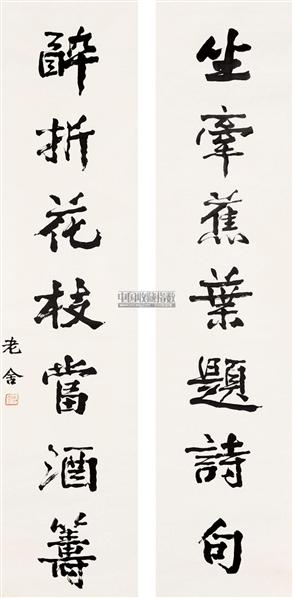 坐牽蕉葉題詩句
醉折花枝當酒籌
老舍
中国收藏指数